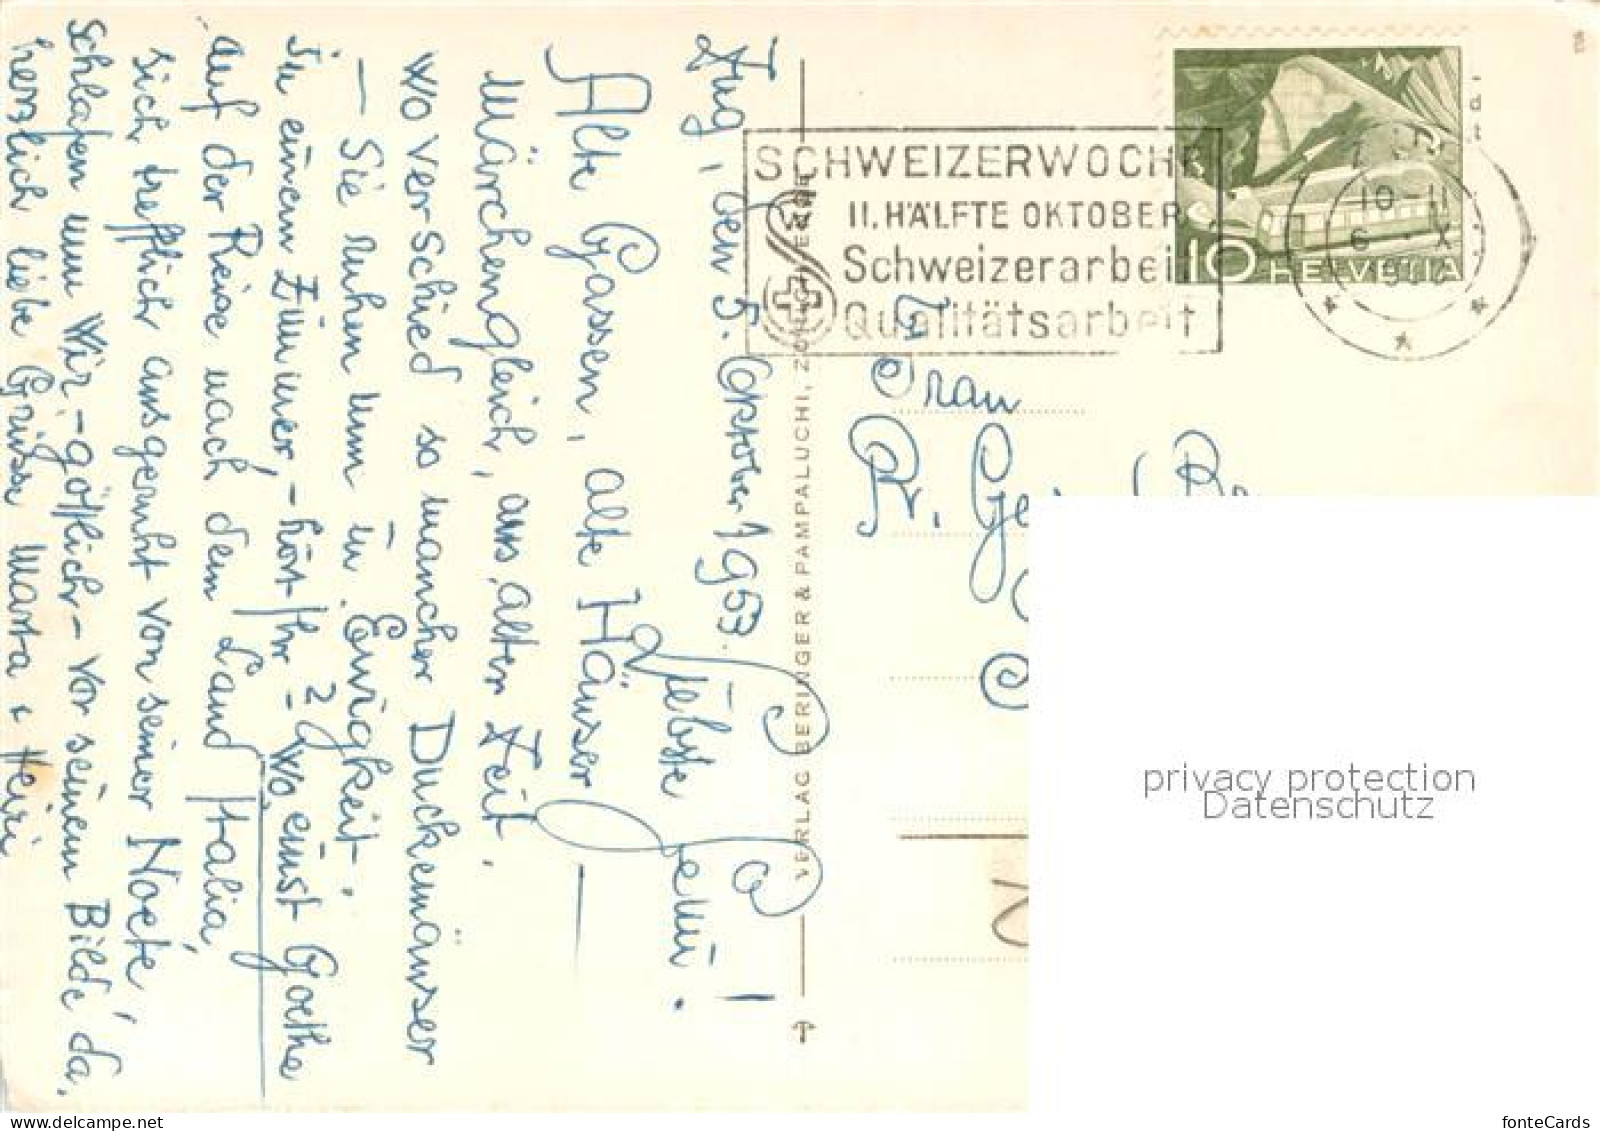 Zug, den 5. Oktober 1953.
Liebste Jenni.
Alte Gassen, alte Häuser
Märchengleich, aus alter Zeit.
Wo verschied so mancher Duckmäuser
– Sie ruhen nun in Ewigkeit.
In einem Zimmer, – hört Ihr – wo einst Goethe
auf der Reise nach dem Land Italia,
sich trefflich ausgeruht von seiner Noeté,
schlafen nun Wir, – göttlich – vor seinem Bilde da.
herzlich liebe Grüsse Marta & Heiri
VERLAG BERINGER & PAMPALUCHI, ZÜRICH
SCHWEIZERWOCHE
II. HÄLFTE OKTOBER
Schweizerarbeit
Qualitätsarbeit
10-11
10 HELVETIA
Frau
R.
privacy protection
Datenschutz
fonteCards